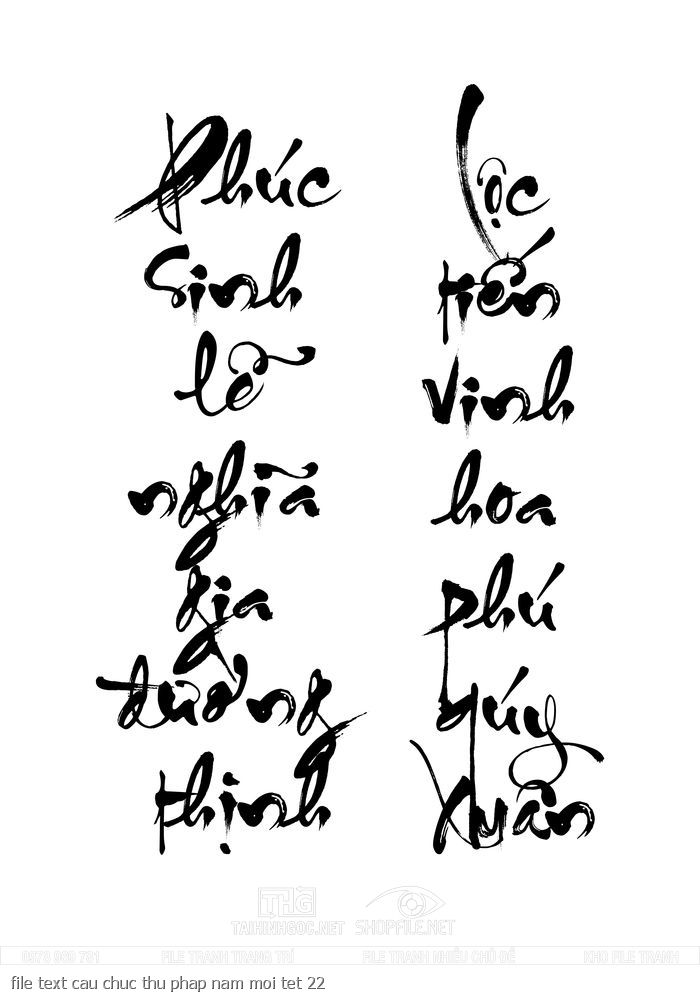 Phúc
sinh
lễ
nghĩa
gia
đường
thịnh
Lộc
tiến
vinh
hoa
phú
qúy
xuân
THG
TAIHINHGOC.NET SHOPFILE.NET
FILE TRANH TRANG TRÍ FILE TRANH NHIỀU CHỦ ĐỀ KHO FILE TRANH
file text cau chuc thu phap nam moi tet 22